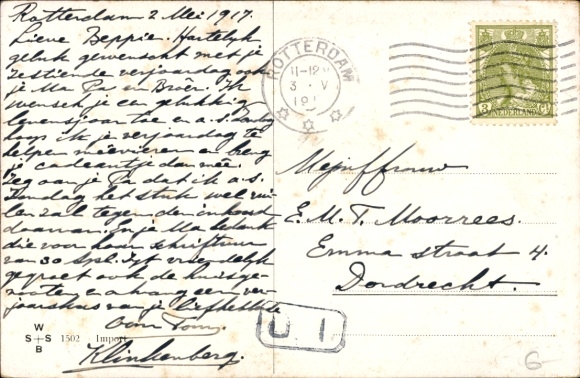 Rotterdam 2 Mei 1917.
Lieve Beppie. Hartelijk
geluk gewenscht met je
zestiende verjaardag ook
je Ma Pa en Broêr. Ik
wensch je een gelukkig
levensjaar toe en a.s. Zondag
hoop ik je verjaardag te
helpen meevieren en breng
je cadeautje dan mee.
Zeg aan je Pa dat ik a.s.
Zondag het stuk wel rui-
len zal tegen den inhoud
daarvan. En je Ma bedank
die voor haar schrijven
van 30 Apl. Zijt vriendelijk
gegroet ook de huisge-
nooten en ontvang een ver-
jaarskus van je liefhebbende
Oom Tom.
Klinkenberg.
ROTTERDAM
11-12
3 V
191
3 Ct
NEDERLAND
Mejuffrouw
E. M. T. Moorrees.
Emma straat 4.
Dordrecht.
D I
W
S S
B
1502 Import
6-